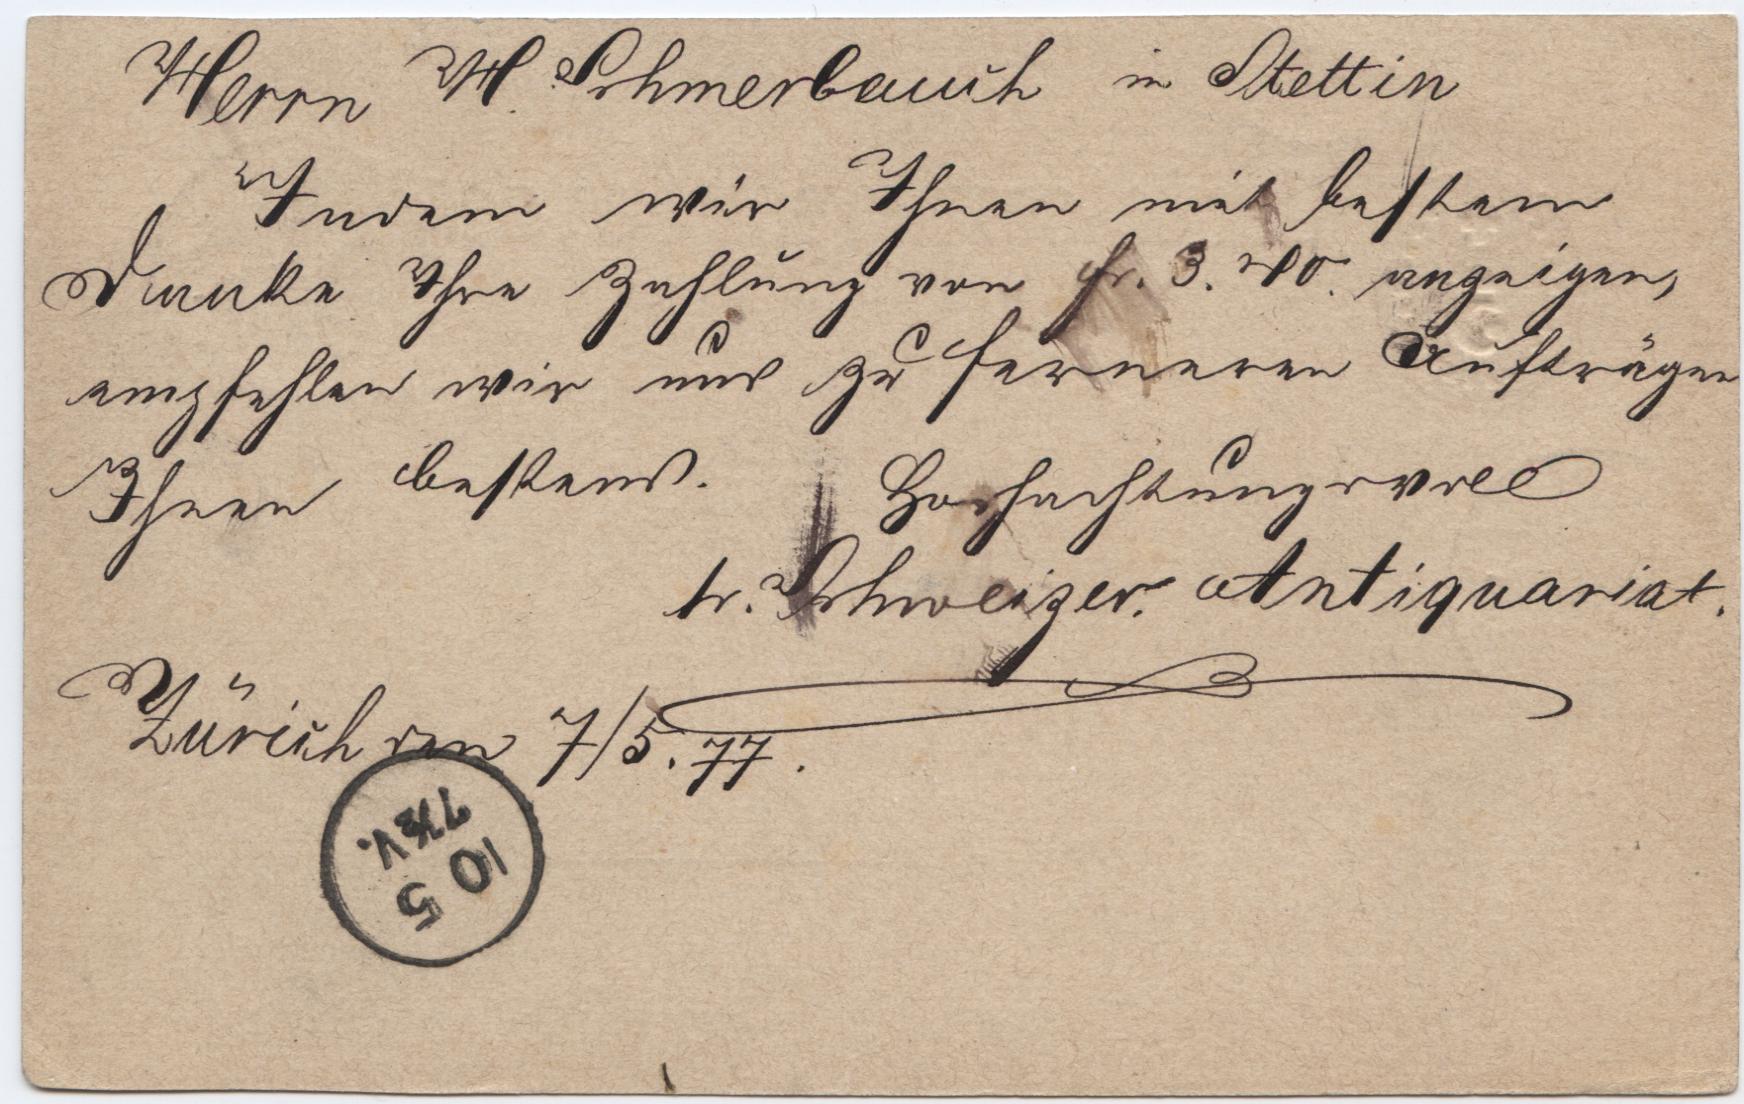 Herrn H. Schmerbauch in Stettin
Indem wir Ihnen mit bestem
Danke Ihre Zahlung von fr. 3. 40. anzeigen,
empfehlen wir uns zu ferneren Aufträgen
Ihnen bestens. Hochachtungsvoll
Schweizer. Antiquariat.
Zürich den 7/5. 77.
10 5
7½V.